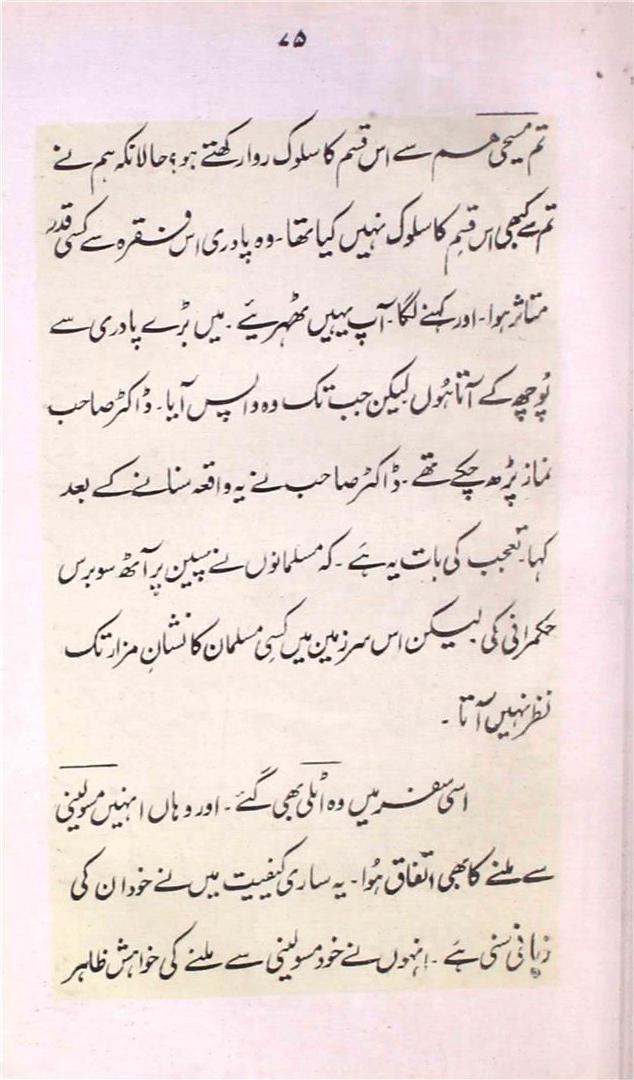 ۷۵
تم مسیحی ہم سے اس قسم کا سلوک روا رکھتے ہو؟ حالانکہ ہم نے
تم سے کبھی اس قسم کا سلوک نہیں کیا تھا۔ وہ پادری اس فقرہ سے کسی قدر
متاثر ہوا۔ اور کہنے لگا۔ آپ یہیں ٹھہریئے۔ میں بڑے پادری سے
پُوچھ کے آتا ہُوں لیکن جب تک وہ واپس آیا۔ ڈاکٹر صاحب
نماز پڑھ چکے تھے۔ ڈاکٹر صاحب نے یہ واقعہ سنانے کے بعد
کہا۔ تعجب کی بات یہ ہَے۔ کہ مسلمانوں نے سپین پر آٹھ سو برس
حکمرانی کی لیکن اس سرزمین میں کسِی مسلمان کا نشانِ مزار تک
نظر نہیں آتا۔
اسی سفر میں وہ اٹلی بھی گئے۔ اور وہاں انہیں مسولینی
سے ملنے کا بھی اتفاق ہُوا۔ یہ ساری کیفیت میں نے خود ان کی
زبانی سنی ہَے۔ اِنہوں نے خود مسولینی سے ملنے کی خواہش ظاہر